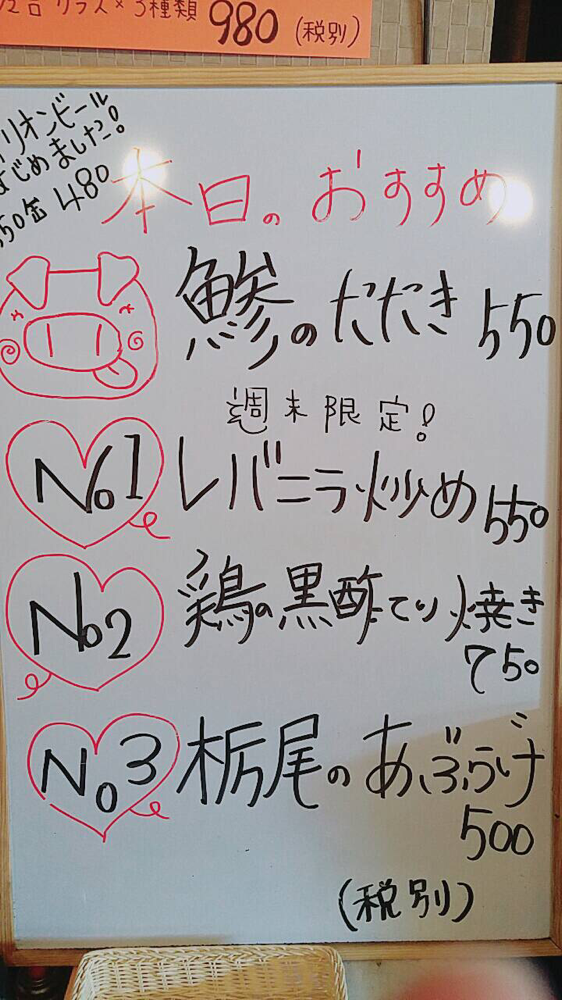 グラス×3種類 980 (税別)
リオンビール
はじめました!
50缶 480
本日のおすすめ
鯵のたたき 550
週末限定!
No1 レバニラ炒め 550
No2 鶏の黒酢てり焼き
750
No3 栃尾のあぶらげ
500
(税別)